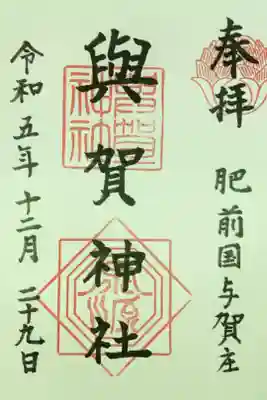 奉拝
肥前国与賀庄
與賀神社
令和五年十二月二十九日